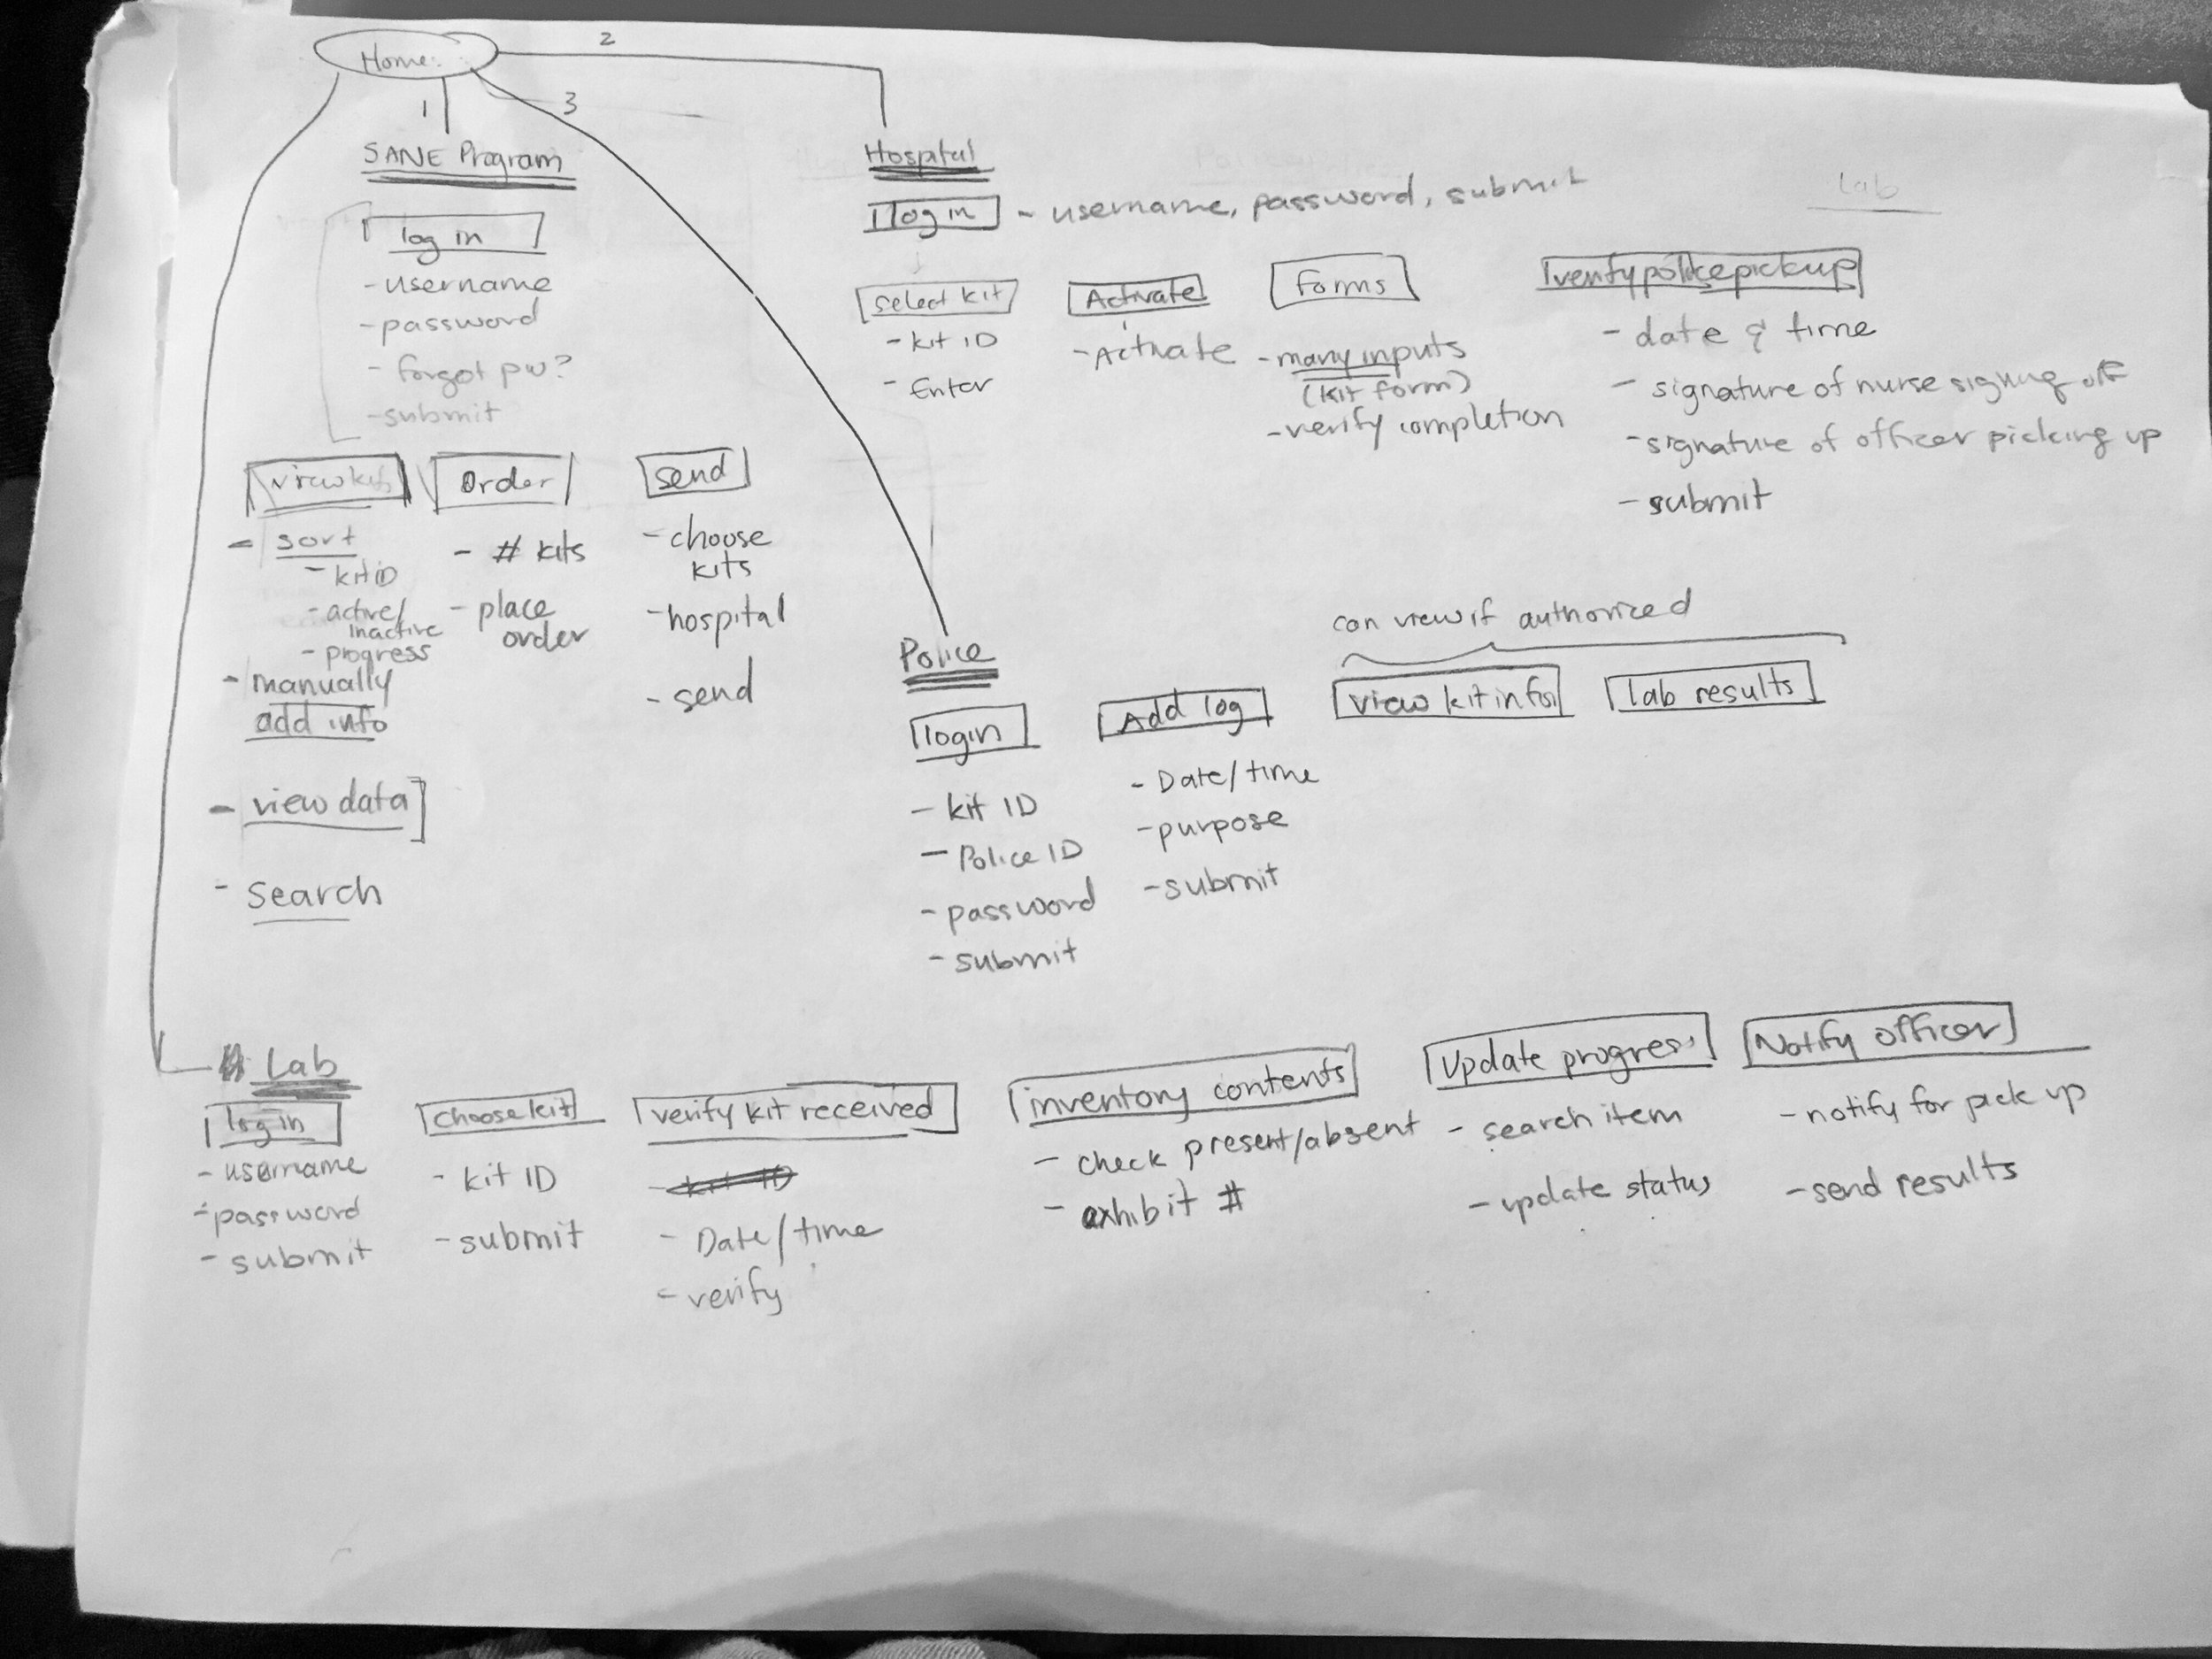 Home
1
2
3
SANE Program
log in
- username
- password
- forgot pw?
- submit
view kits
- sort
- kit ID
- active/
inactive
- progress
- manually
add info
- view data
- search
Order
- # kits
- place
order
send
- choose
kits
- hospital
- send
Hospital
log in - username, password, submit
Lab
select kit
- kit ID
- Enter
Activate
- Activate
forms
- many inputs
(kit form)
- verify completion
verify police pickup
- date & time
- signature of nurse signing off
- signature of officer picking up
- submit
Police
login
- kit ID
- Police ID
- password
- submit
Add log
- Date/time
- purpose
- submit
can view if authorized
view kit info
lab results
Lab
log in
- username
- password
- submit
choose kit
- kit ID
- submit
verify kit received
- kit ID
- Date/time
- verify
inventory contents
- check present/absent
- exhibit #
Update progress
- search item
- update status
Notify officer
- notify for pick up
- send results